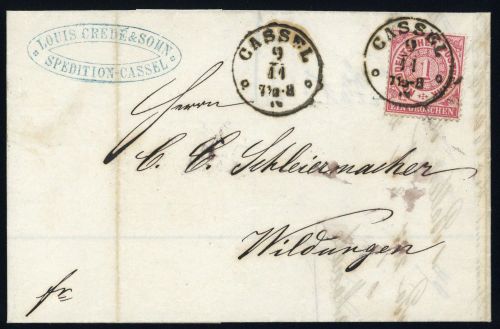 LOUIS CREDÉ & SOHN
SPEDITION-CASSEL
CASSEL
9
11
7½-8
CASSEL
9
11
7½-8
1
EIN GROSCHEN
Herrn
C. C. Schleiermacher
Wildungen
fr